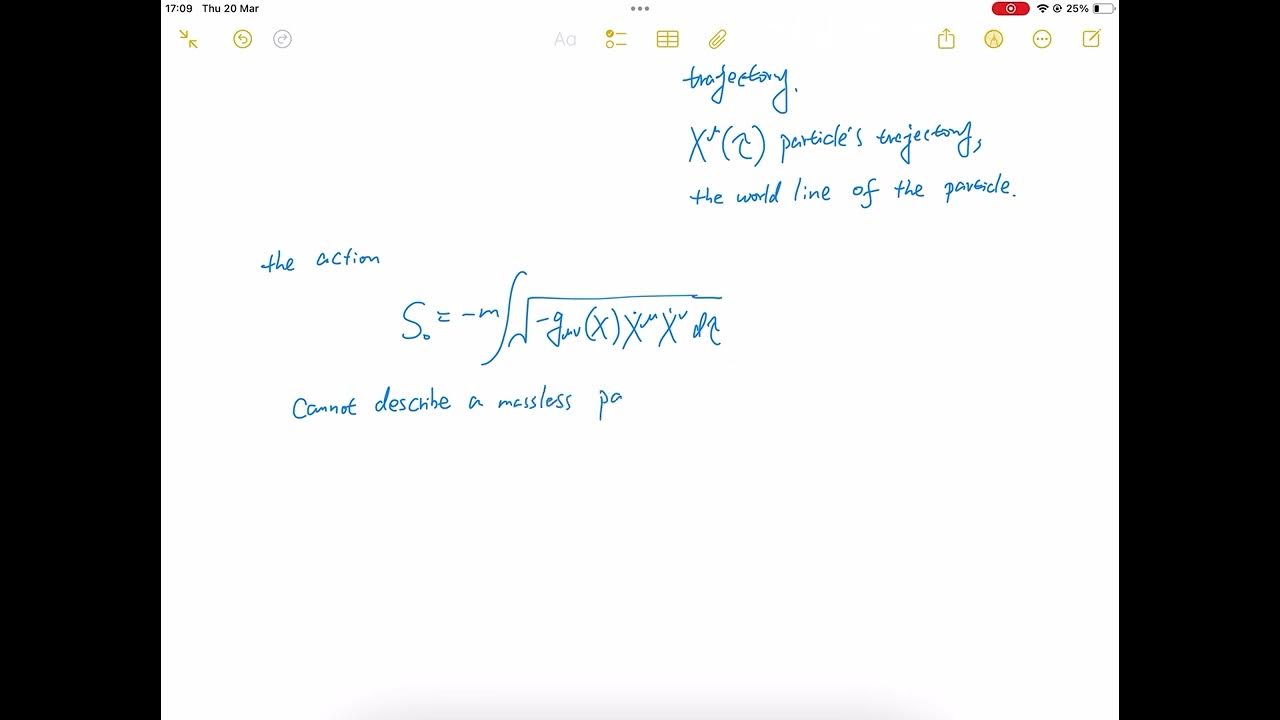 17:09 Thu 20 Mar 25%
Aa
trajectory.
X^μ(τ) particle's trajectory,
the world line of the particle.
the action
S₀ = -m∫√(-g_μν(X)Ẋ^μẊ^ν) dτ
Cannot describe a massless pa